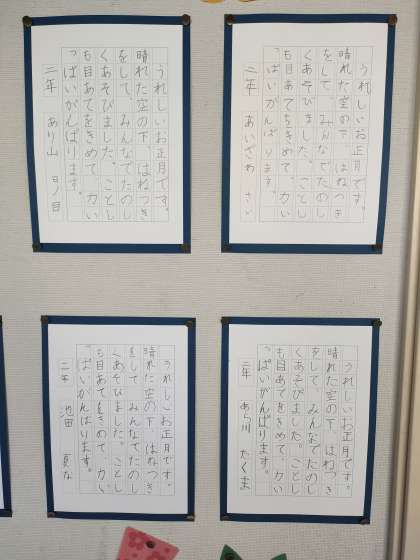 うれしいお正月です。
晴れた空の下、はねつき
をして、みんなでたのし
くあそびました。ことし
も目あてをきめて、力い
っぱいがんばります。
二年 あいざわ
うれしいお正月です。
晴れた空の下、はねつき
をして、みんなでたのし
くあそびました。ことし
も目あてをきめて、力い
っぱいがんばります。
二年 あり山
うれしいお正月です。
晴れた空の下、はねつき
をして、みんなでたのし
くあそびました。ことし
も目あてをきめて、力い
っぱいがんばります。
二年 あら川 たくま
うれしいお正月です。
晴れた空の下、はねつき
をして、みんなでたのし
くあそびました。ことし
も目あてをきめて、力い
っぱいがんばります。
二年 池田